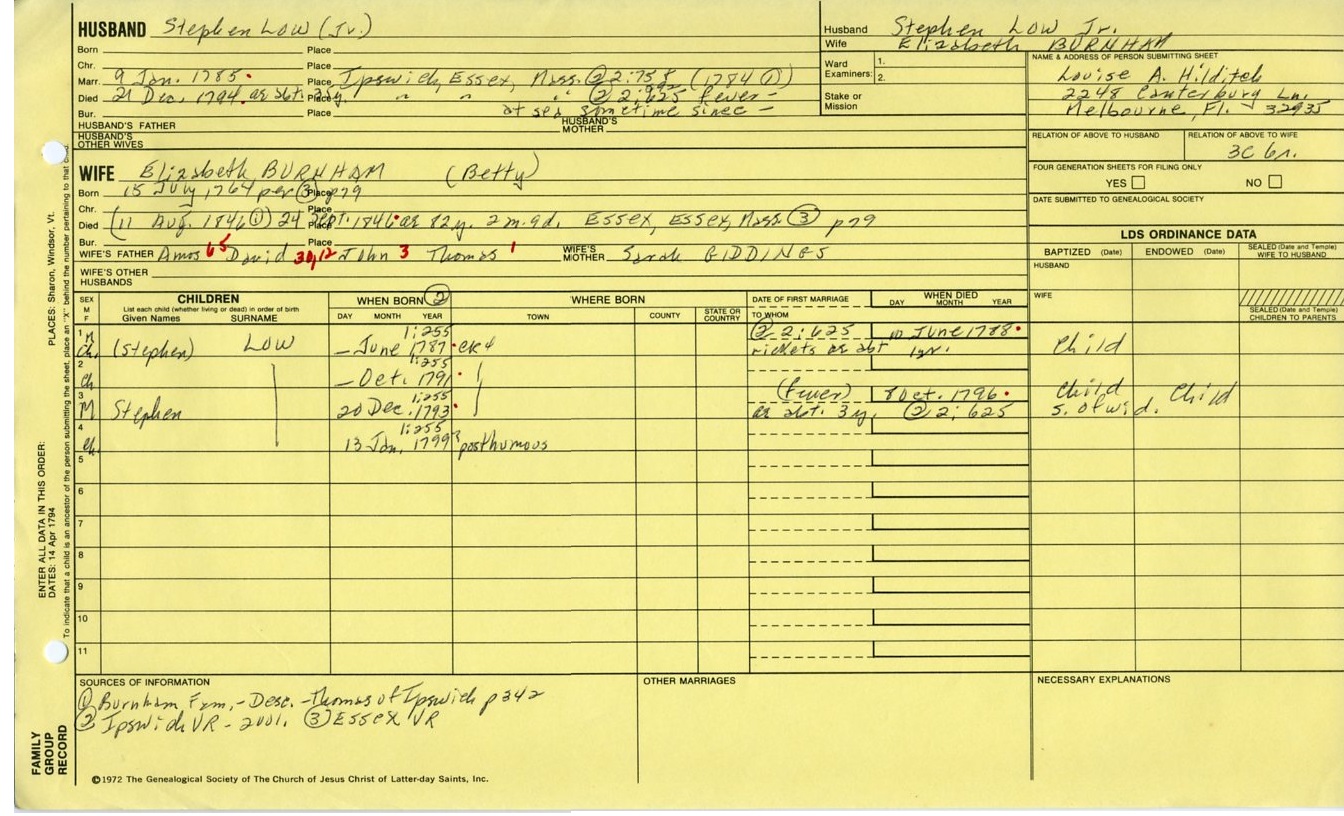 HUSBAND Stephen Low (Jr.)
Born Place
Chr. Place
Marr. 9 Jan. 1785. Place Ipswich, Essex, Mass. ② 2:758 (1784 ①)
Died 21 Dec. 1794. as abt. Place " " " ② 2:625 fever-
Bur. Place at sea sometime since -
HUSBAND'S FATHER HUSBAND'S MOTHER
HUSBAND'S OTHER WIVES
Husband Stephen Low Jr.
Wife Elizabeth BURNHAM
Ward Examiners: 1.
2.
Stake or Mission
NAME & ADDRESS OF PERSON SUBMITTING SHEET
Louise A. Hilditch
2248 Canterbury Ln.
Melbourne, Fl. 32935
RELATION OF ABOVE TO HUSBAND RELATION OF ABOVE TO WIFE
3C 6r.
FOUR GENERATION SHEETS FOR FILING ONLY
YES NO
DATE SUBMITTED TO GENEALOGICAL SOCIETY
WIFE Elizabeth BURNHAM (Betty)
Born 15 July 1764 per ③ Place p79
Chr. Place
Died (11 Aug. 1846 ①) 24 Sept. 1846. as 82y. 2m. 9d. Place Essex, Essex, Mass. ③ p79
Bur. Place
WIFE'S FATHER Amos 65 David 30,12 John 3 Thomas 1 WIFE'S MOTHER Sarah GIDDINGS
WIFE'S OTHER HUSBANDS
LDS ORDINANCE DATA
BAPTIZED (Date) ENDOWED (Date) SEALED (Date and Temple) WIFE TO HUSBAND
HUSBAND
WIFE
SEALED (Date and Temple) CHILDREN TO PARENTS
SEX M F CHILDREN List each child (whether living or dead) in order of birth Given Names SURNAME WHEN BORN ② DAY MONTH YEAR WHERE BORN TOWN COUNTY STATE OR COUNTRY DATE OF FIRST MARRIAGE TO WHOM WHEN DIED DAY MONTH YEAR
1 M ② 2:625 10 June 1788.
Ch. (Stephen) Low 1:255 — June 1787. ck4 rickets as abt 1yr. Child
2 Ch 1:255 — Oct. 1791.
3 M Stephen 1:255 20 Dec. 1793. (fever) 8 Oct. 1796. Child Child
as abt. 3y. ② 2:625 s. of wid.
4 Ch. 1:255 13 Jan. 1799? posthumous
5
6
7
8
9
10
11
SOURCES OF INFORMATION
① Burnham Fam. - Desc. - Thomas of Ipswich p342
② Ipswich VR - 2001. ③ Essex VR
OTHER MARRIAGES
NECESSARY EXPLANATIONS
©1972 The Genealogical Society of The Church of Jesus Christ of Latter-day Saints, Inc.
FAMILY GROUP RECORD
ENTER ALL DATA IN THIS ORDER:
DATES: 14 Apr 1794
PLACES: Sharon, Windsor, Vt.
To indicate that a child is an ancestor of the person submitting the sheet, place an "X" behind the number pertaining to that child.